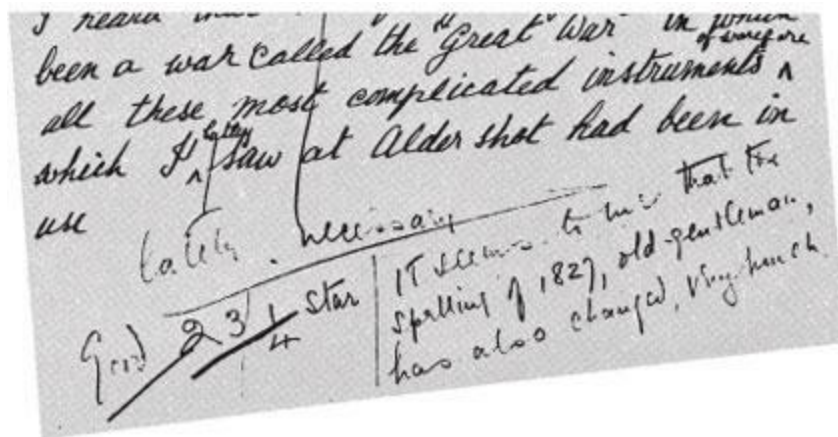 I heard
been a war called the "Great War" in which
of warfare
all these most complicated instruments ^
which I ^ lately saw at Alder shot had been in
use
lately. necessary
Good 23 1/4 Star
It seems to me that the
spelling of 1827, old-gentleman,
has also changed, very much.